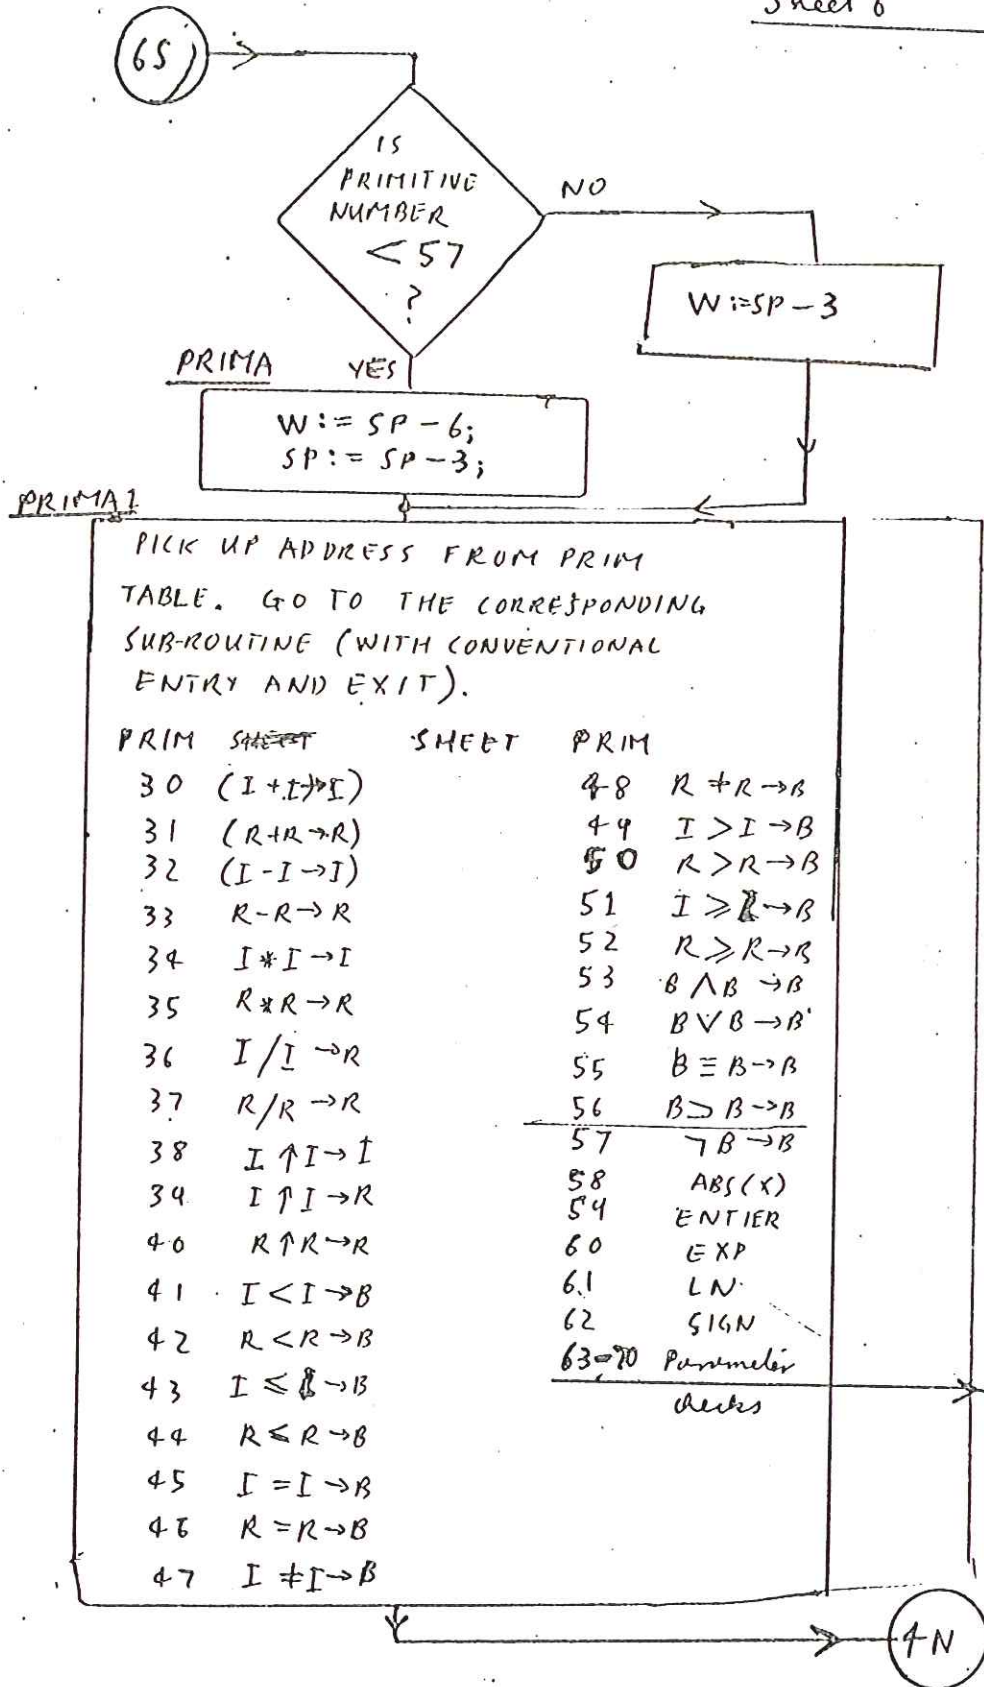 Sheet 6
6S
IS
PRIMITIVE
NUMBER
< 57
?
NO
W:=SP-3
YES
PRIMA
W := SP - 6;
SP := SP - 3;
PRIMA1
PICK UP ADDRESS FROM PRIM
TABLE. GO TO THE CORRESPONDING
SUB-ROUTINE (WITH CONVENTIONAL
ENTRY AND EXIT).
PRIM SHEET SHEET PRIM
30 (I+I→I)
31 (R+R→R)
32 (I-I→I)
33 R-R→R
34 I*I→I
35 R*R→R
36 I/I→R
37 R/R→R
38 I↑I→I
39 I↑I→R
40 R↑R→R
41 I<I→B
42 R<R→B
43 I≤I→B
44 R≤R→B
45 I=I→B
46 R=R→B
47 I≠I→B
48 R≠R→B
49 I>I→B
50 R>R→B
51 I≥I→B
52 R≥R→B
53 B∧B→B
54 B∨B→B
55 B≡B→B
56 B⊃B→B
57 ¬B→B
58 ABS(X)
59 ENTIER
60 EXP
61 LN
62 SIGN
63-70 Parameter
checks
4N